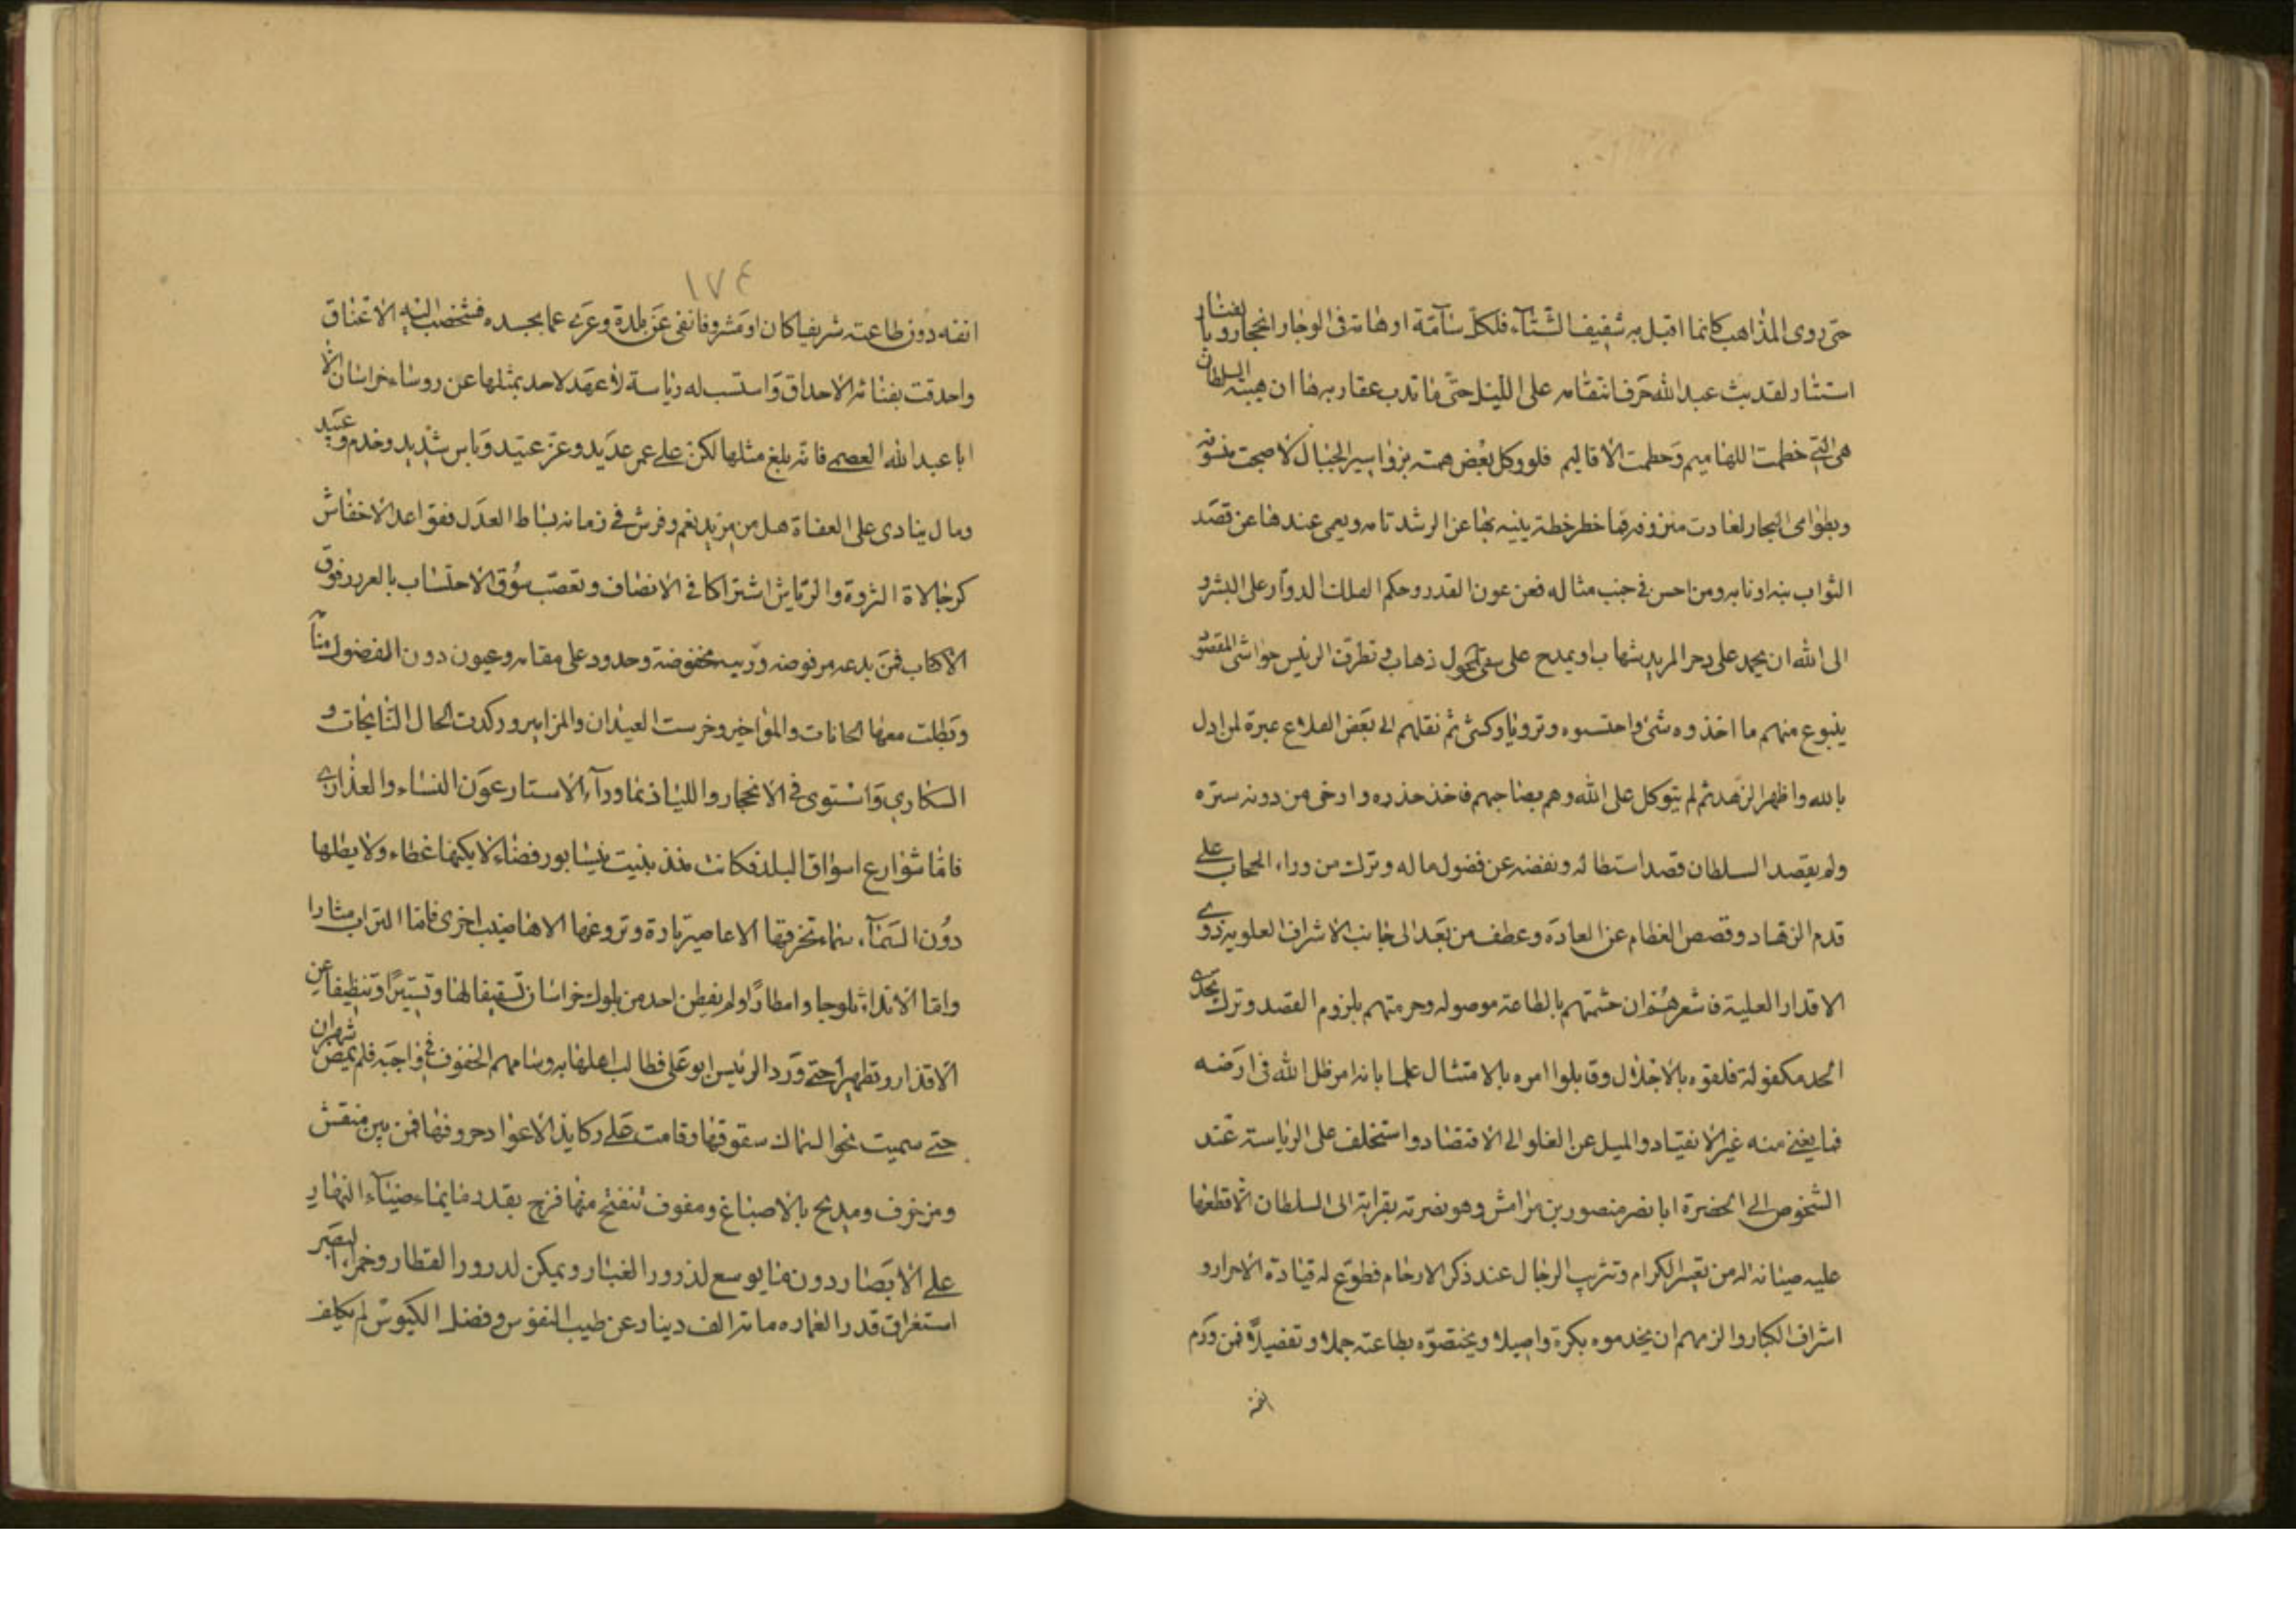 حتى روى المذاهب كانما اقبل به شفيف الشتاء فلكل سآمة اوهامة فى الوجار انجحار وبا لفشار
استثار لقد بث عبد الله حر فانتقامه على الليل حتى ما تدب عقاربه فما ان هيبة السلطان
هى التى خطمت اللهاميم وحطمت الاقاليم فلو وكل بعض همته بزواسير الجبال لاصبحت منسوفة
وبطوامى البحار لغادرت منزوفه فما خطر خطة ينبه بها عن الرشد تامه ويعمى عندها عن قصد
الثواب بنه اونابه ومن احسن فى جنب مثاله فعن عون القدر وحكم الفلك الدوار على البشر و
الى الله ان يحمد على دحر المريد شهاب او يمدح على سقى المحول ذهاب وتطرق الرئيس حواشى المقصو
ينبوع منهم ما اخذوه شئ واحتسوه وترويا وكشئ ثم نقلهم الى بعض القلاع عبرة لمن ادل
بالله واظهر الزهد ثم لم يتوكل على الله وهم بصاحبهم فاخذ حذره وارخى من دونه ستره
ولم يقصد السلطان قصد استطاله ونفضه عن فضول ماله وترك من وراء الحجاب على
قدم الزهاد وقصص العظام عن العادة وعطف من بعد الى جانب الاشراف العلوية ذوى
الاقدار العلية فاشعرهم ان حشمتهم بالطاعة موصوله وحرمتهم بلزوم القصد وترك تعدى
الحد مكفولة فلقوه بالاجلال وقابلوا امره بالامتثال علما بانه امر ظل الله فى ارضه
فما يغنى منه غير الانقياد والميل عن الغلو الى الاقتصاد واستخلف على الرياسة عند
الشخوص الى الحضرة ابا نصر منصور بن رامش وهو نصرته بقرابة الى السلطان الا قطعها
عليه صيانة له من تعيير الكرام وتثريب الرجال عند ذكر الارحام فطوع له قيادة الاحرار و
اشراف الكبار والزمهم ان يخدموه بكرة واصيلا ويختصوه بطاعته جملا وتفصيلا فمن ورم
انفه
١٧٤
انفه دون طاعته شريفا كان او مشروفا نفى عن بلدة وعرى عما بجسده فشخصت اليه الاعناق
واحدقت بفنائه الاحداق واستتب له رياسة لا عهد لاحد بمثلها عن روساء خراسان الا
ابا عبد الله العصمى فانه بلغ مثلها لكن على عمر عديد وعز عتيد وباس شديد وخدم وعبيد
ومال ينادى على العفاة هل من مزيد نعم وفرش فى زمانه بساط العدل فقواعد الاخفاش
كرجالاة الثروة والرياش اشتراكا فى الانصاف وتعصب سوق الاحتساب بالعرر وفوق
الاكاب فمن بدعه مرفوضه وريبه مخفوضة وحدود على مقامه وعيون دون الفضول منا
وبطلت معها الحانات والمواخير وخرست العيدان والمزامير وركدت الحال النايحات و
السكارى واستوى فى الانحجار واللياذ بما وراء الاستار عون النساء والعذارى
فاما شوارع اسواق البلد فكانت منذ بنيت نيسابور فضاء لا يكنها غطاء ولا يظلها
دون السماء سماء تخرقها الاعاصير تارة وتروعها الاهاضيب اخرى فاما التراب مثارا
واما الانداء ثلوجا وامطارا ولم يفطن احد من ملوك خراسان تسقيفا لها وتستيرا وتنظيفا عن
الاقذار وتطهيرا حتى ورد الرئيس ابو على فطالب اهلها به وسامهم الخفوف فى واجبه فلم يمض شهران
حتى سميت نحو السماك سقوفها وقامت على ركايز الاعواد حروفها فمن بين منقش
ومزخرف ومدبح بالاصباغ ومفوف تنفتح منها فرج بقدر ما يماء ضياء النهار
على الابصار دون ما يوسع لذرور الغبار ويمكن لدرور القطار وخمر البصير
استغراق قدر العماره مائة الف دينار عن طيب النفوس وفضل الكيوس لم يكلف